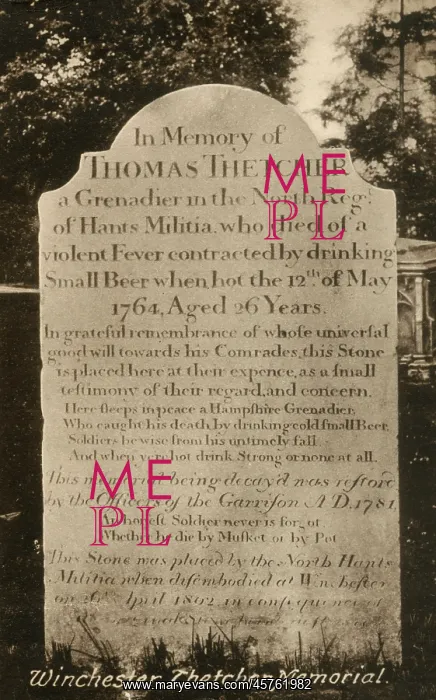 In Memory of
THOMAS THETCHER
a Grenadier in the North Reg.t
of Hants Militia, who died of a
violent Fever contracted by drinking
Small Beer when hot the 12th of May
1764, Aged 26 Years.
In grateful remembrance of whose universal
good will towards his Comrades, this Stone
is placed here at their expence, as a small
testimony of their regard and concern.
Here sleeps in peace a Hampshire Grenadier,
Who caught his death by drinking cold small Beer,
Soldiers be wise from his untimely fall
And when yere hot drink Strong or none at all.
This memorial being decay'd was restor'd
by the Officers of the Garrison A.D. 1781.
An honest Soldier never is forgot
Whether he die by Musket or by Pot
This Stone was placed by the North Hants
Militia when disembodied at Winchester
on 26th April 1802, in consequence of
ME
PL
ME
PL
Winchester, Thetcher Memorial.
www.maryevans.com/45761982